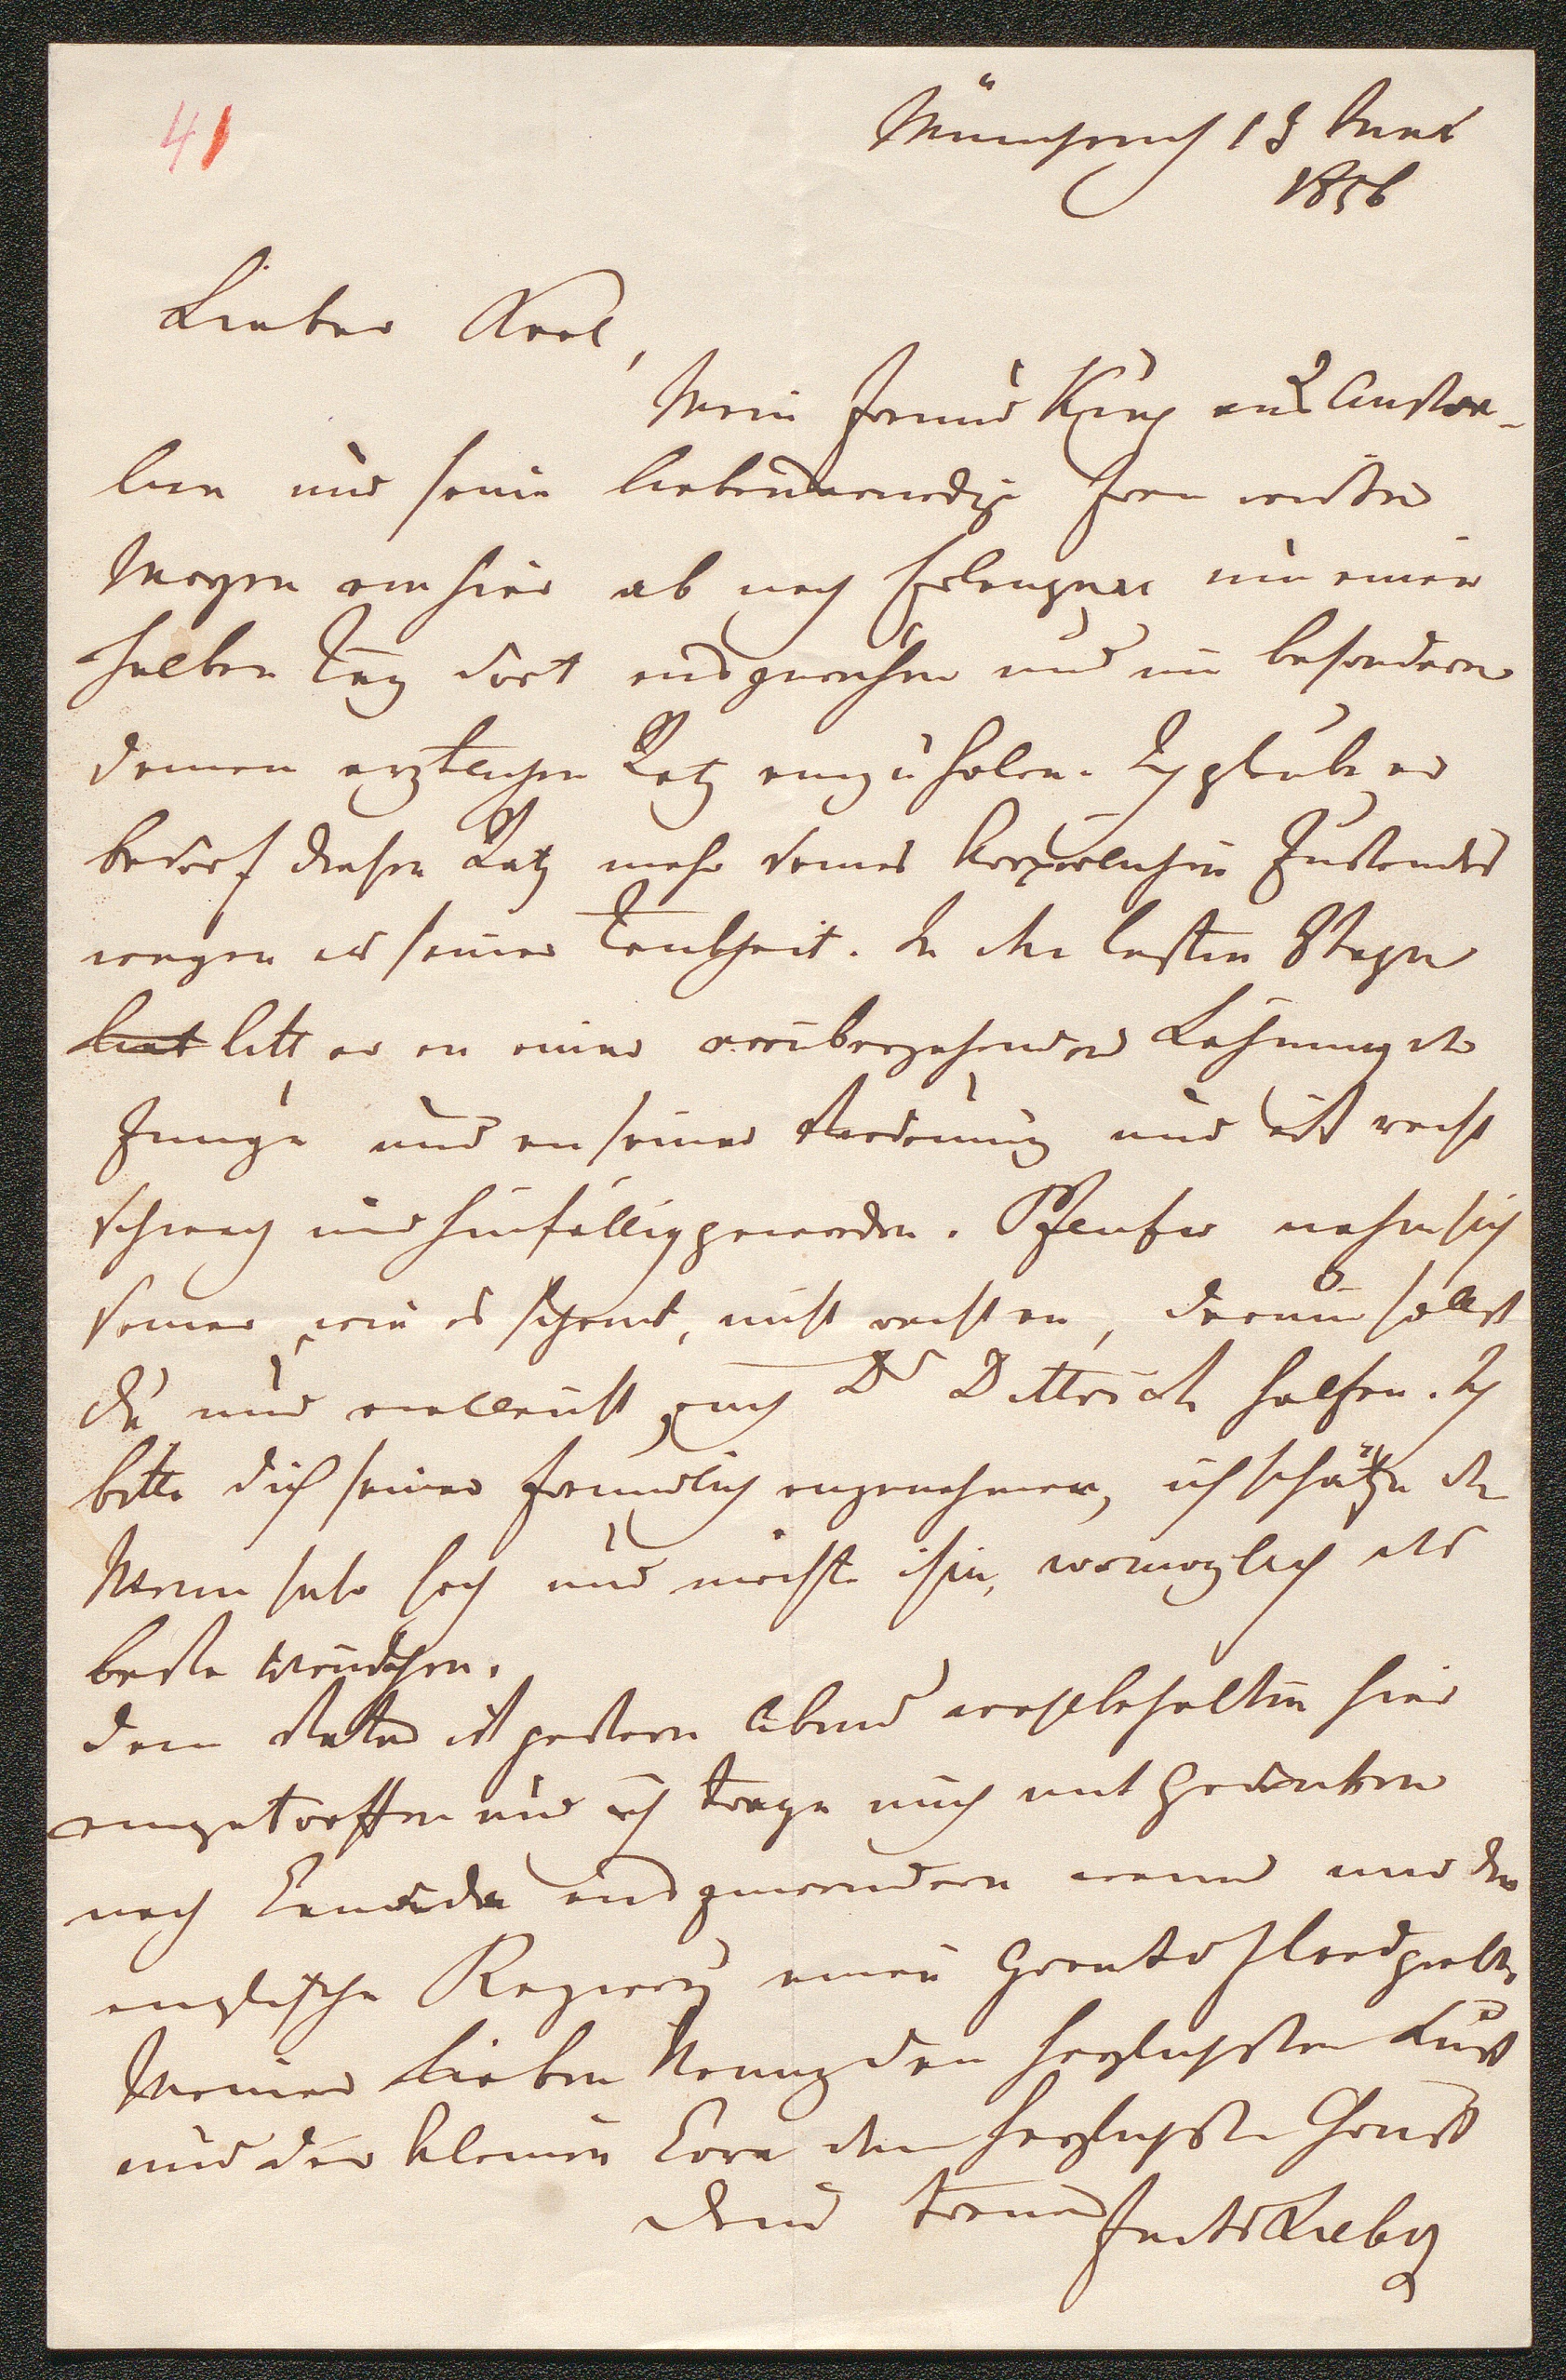 41
München 13 Mai
1856
Lieber Karl,
Mein Freund King aus Austra-
lien und seine liebenswürdige Frau reisten
Morgen von hier ab nach Erlangen um einen
halben Tag dort auszuruhen und um besonders
deinen arztlichen Rath einzuholen. Ich glaube er
bedarf diesen Rath mehr seines korperlichen Zustandes
wegen als seiner Taubheit. In den letzten Tagen
litt er an einer vorübergehenden Lähmung der
Zunge und an seiner Verdauung und ist recht
schwach und hinfällig geworden. Pfeufer nahm sich
seiner, wie es scheint, nicht recht an, darum sollst
du und vielleicht auch Dr Dittrich helfen. Ich
bitte dich seiner freundlich anzunehmen, ich schätze den
Mann sehr hoch und möchte ihm, womoglich das
beste wünschen.
Dein Vater ist gestern Abend wohlbehalten hier
eingetroffen und ich trage mich mit Gedanken
nach Canada auszuwandern wenn mir die
englische Regierung einen Grant of land giebt.
Meiner lieben Nanny den herzlichsten Kuß
und der kleinen Cora den herzlichsten Gruß
Dein treuer Justus Liebig